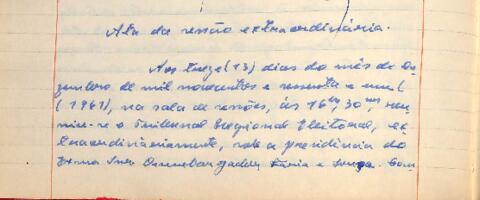 Ata da sessão extraordinária.
Aos treze (13) dias do mês de De-
zembro de mil novecentos e sessenta e um (
(1961), na sala de sessões, às 16 hs, 30 ms, reu-
niu-se o Tribunal Regional Eleitoral, ex-
traordinàriamente, sob a presidência do
Exmo Snr. Desembargador Faria e Sousa. Com